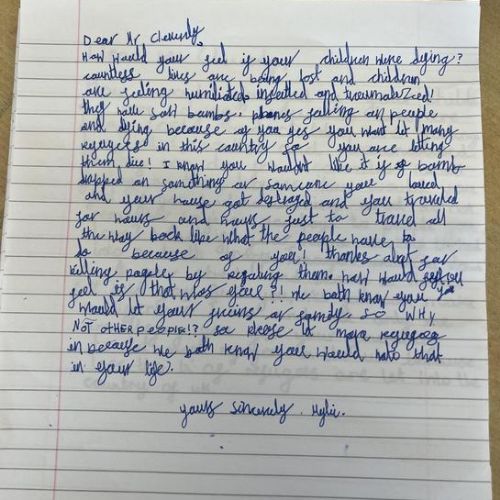 Dear Mr Cleverly,
How would your feel if your children were dying?
countless lives are being lost and children
are feeling humiliated insulted and traumatized!
they have saw bombs. planes falling on people
and dying because of you yes you want let many
refugees in this country so you are leting
them die! I know you wouldnt like it if a bomb
dropped on something or someone you loved
and your house got destroyed and you traveled
for hours and hours just to travel all
the way back like what the people have to
do because of you! thanks alot for
killing people by them. how would you
feel if that was you?! We both know you
would let your friends or family so WHY
NOT other people!? so please let more refugees
in because we both know you would hate that
in your life.
yours sincerely.